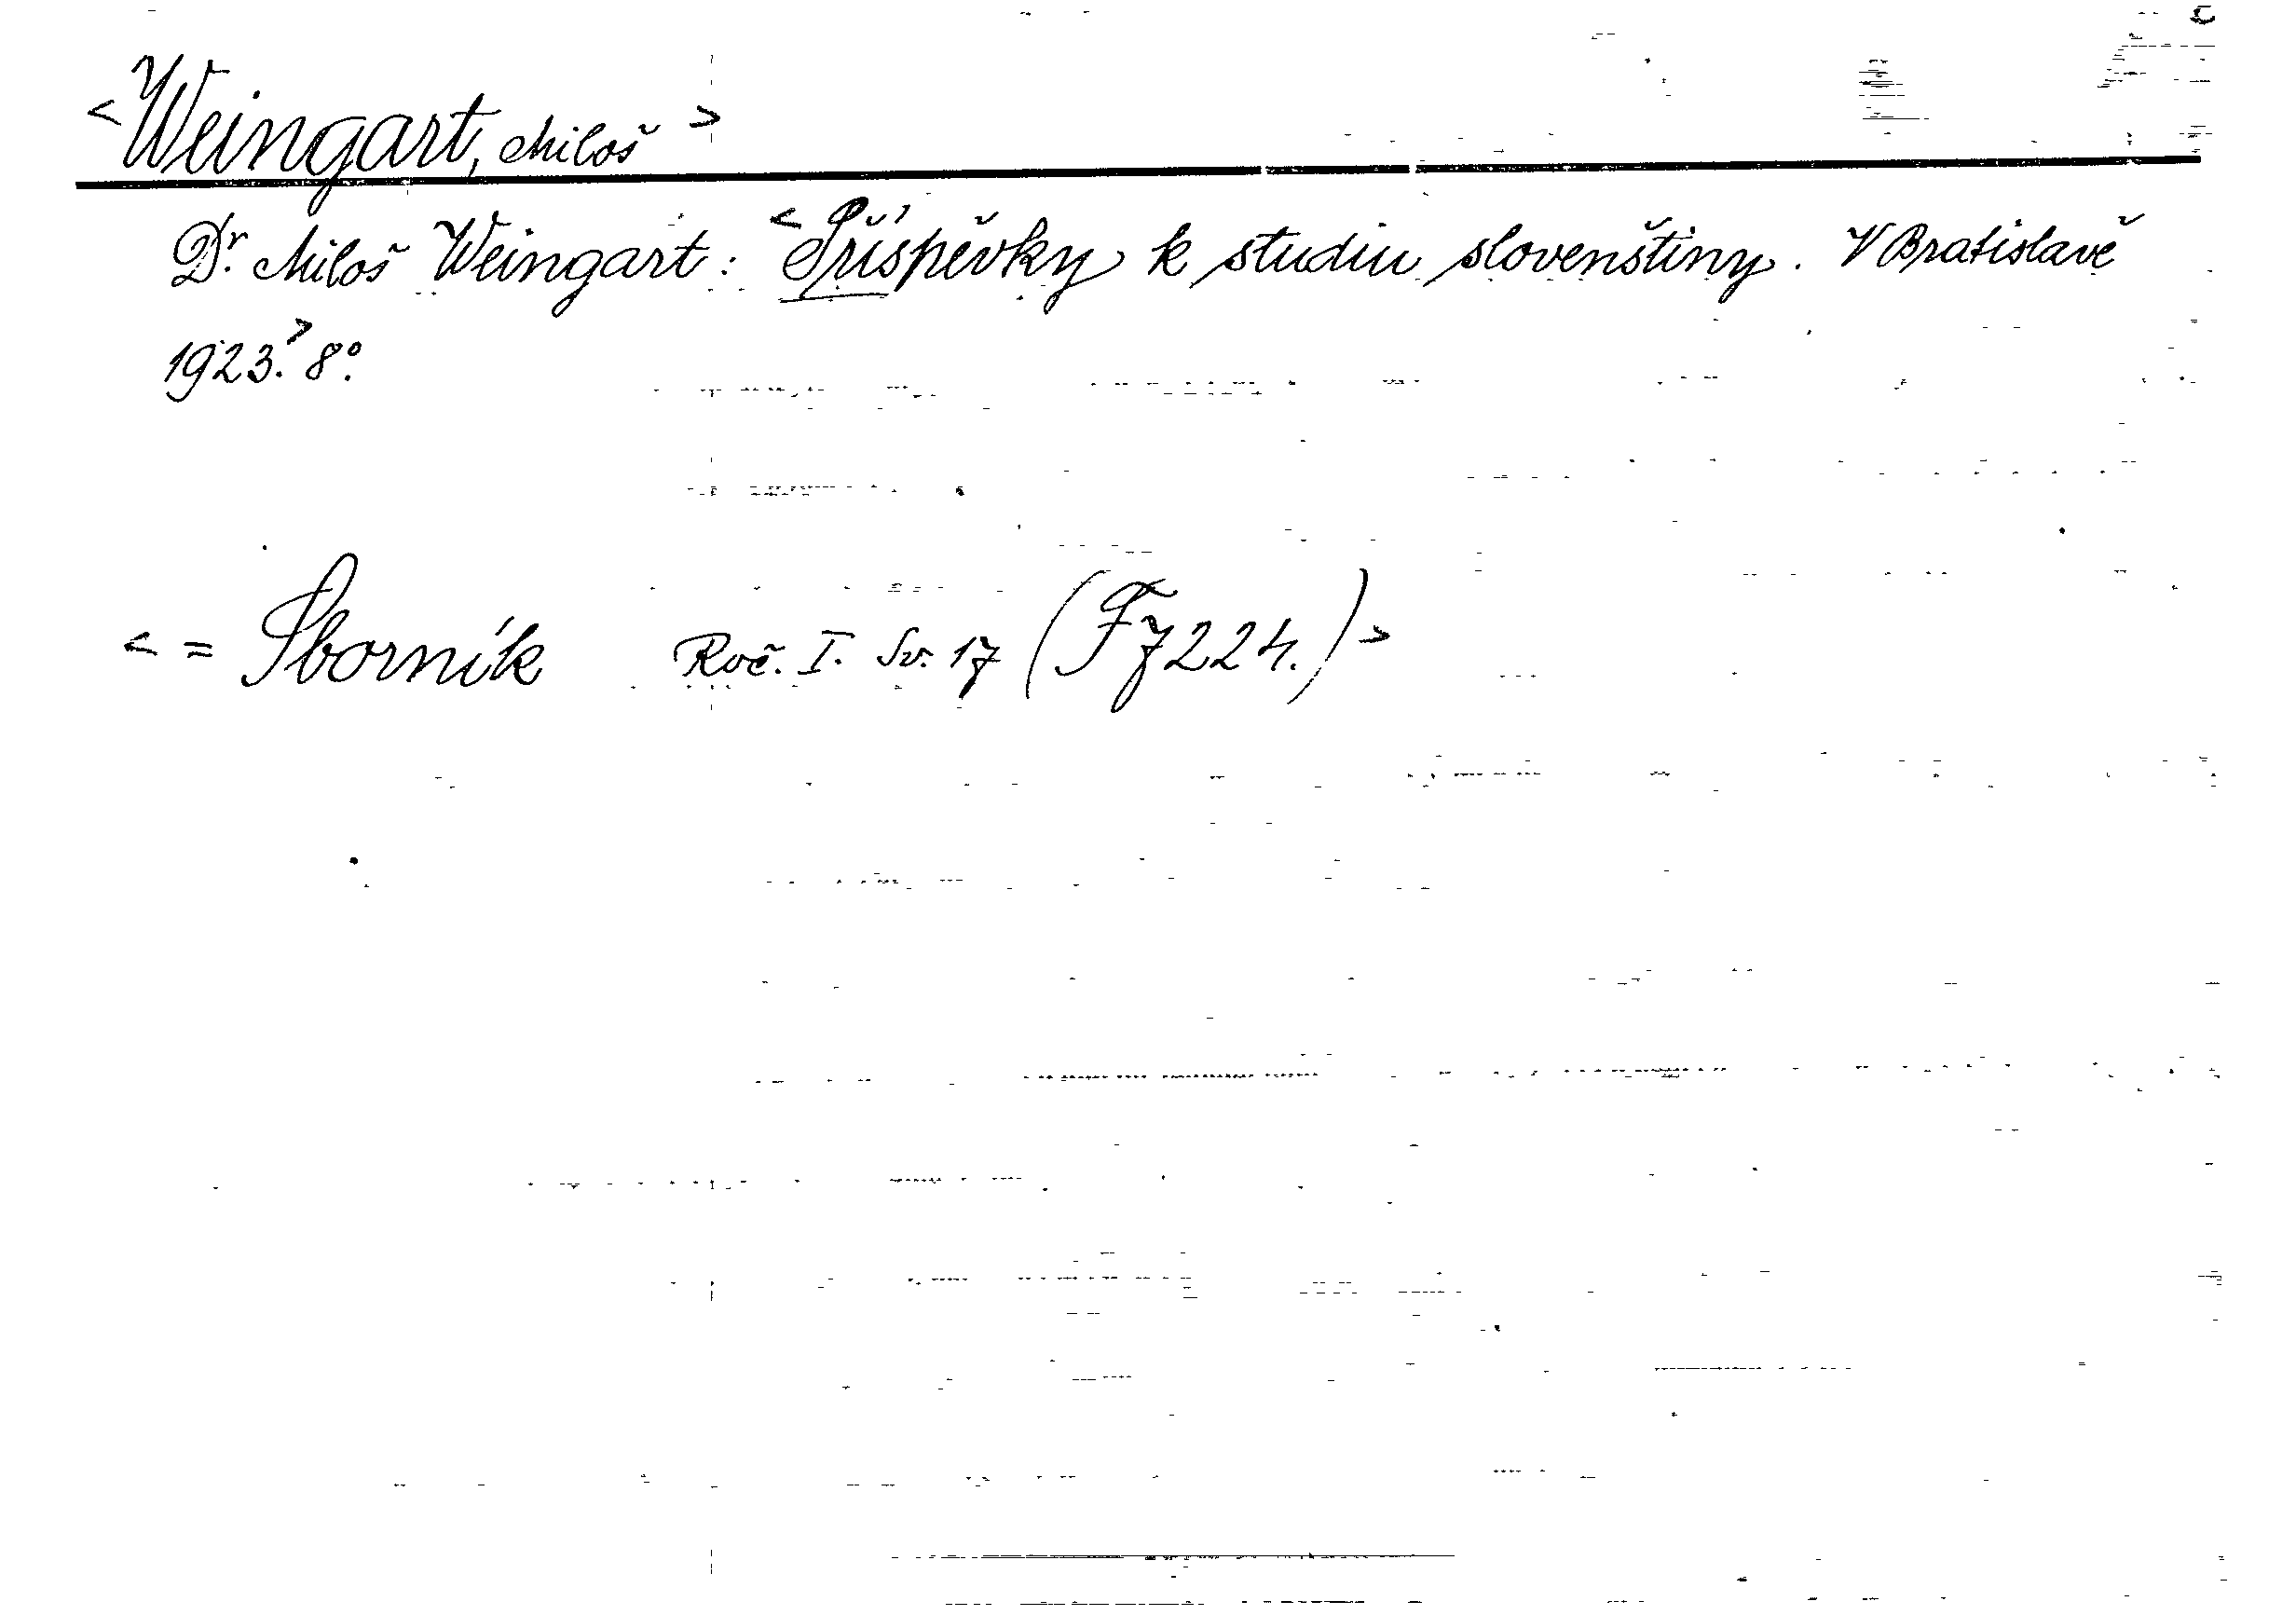 <Weingart, Miloš>
Dr. Miloš Weingart: <Příspěvky k studiu slovenštiny. V Bratislavě
1923.> 8°.
<= Sborník Roč. I. Sv. 17 (F7224.)>